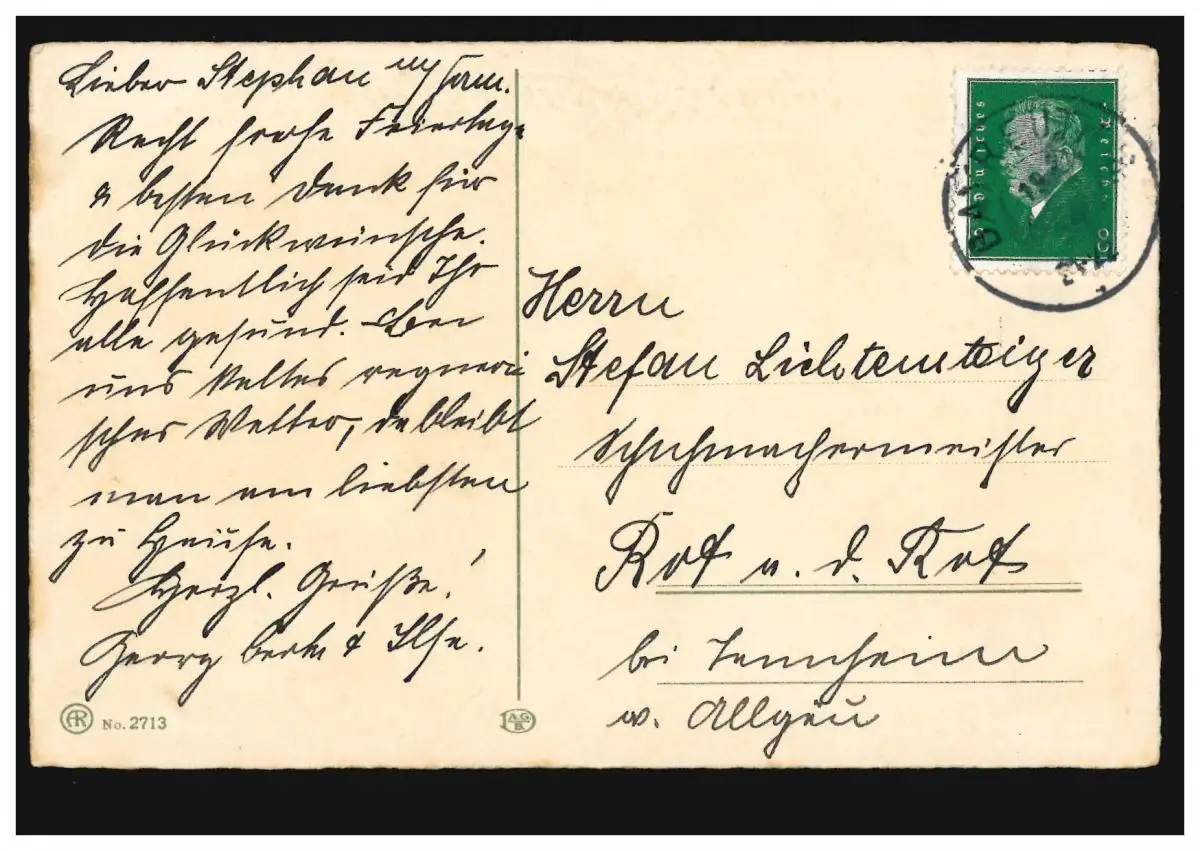 Lieber Stephan m/ Fam.
Recht frohe Feiertage
& besten Dank für
die Glückwünsche.
Hoffentlich seid Ihr
alle gesund. Bei
uns kaltes regneri
sches Wetter, da bleibt
man am liebsten
zu Hause.
Herzl. Grüße!
Georg & Ilse.
AR No. 2713
A.G.B.
Deutsches Reich
8
Herrn
Stefan Lichtensteiger
Schuhmachermeister
Rot a. d. Rot
bei Tannheim
w. Allgäu